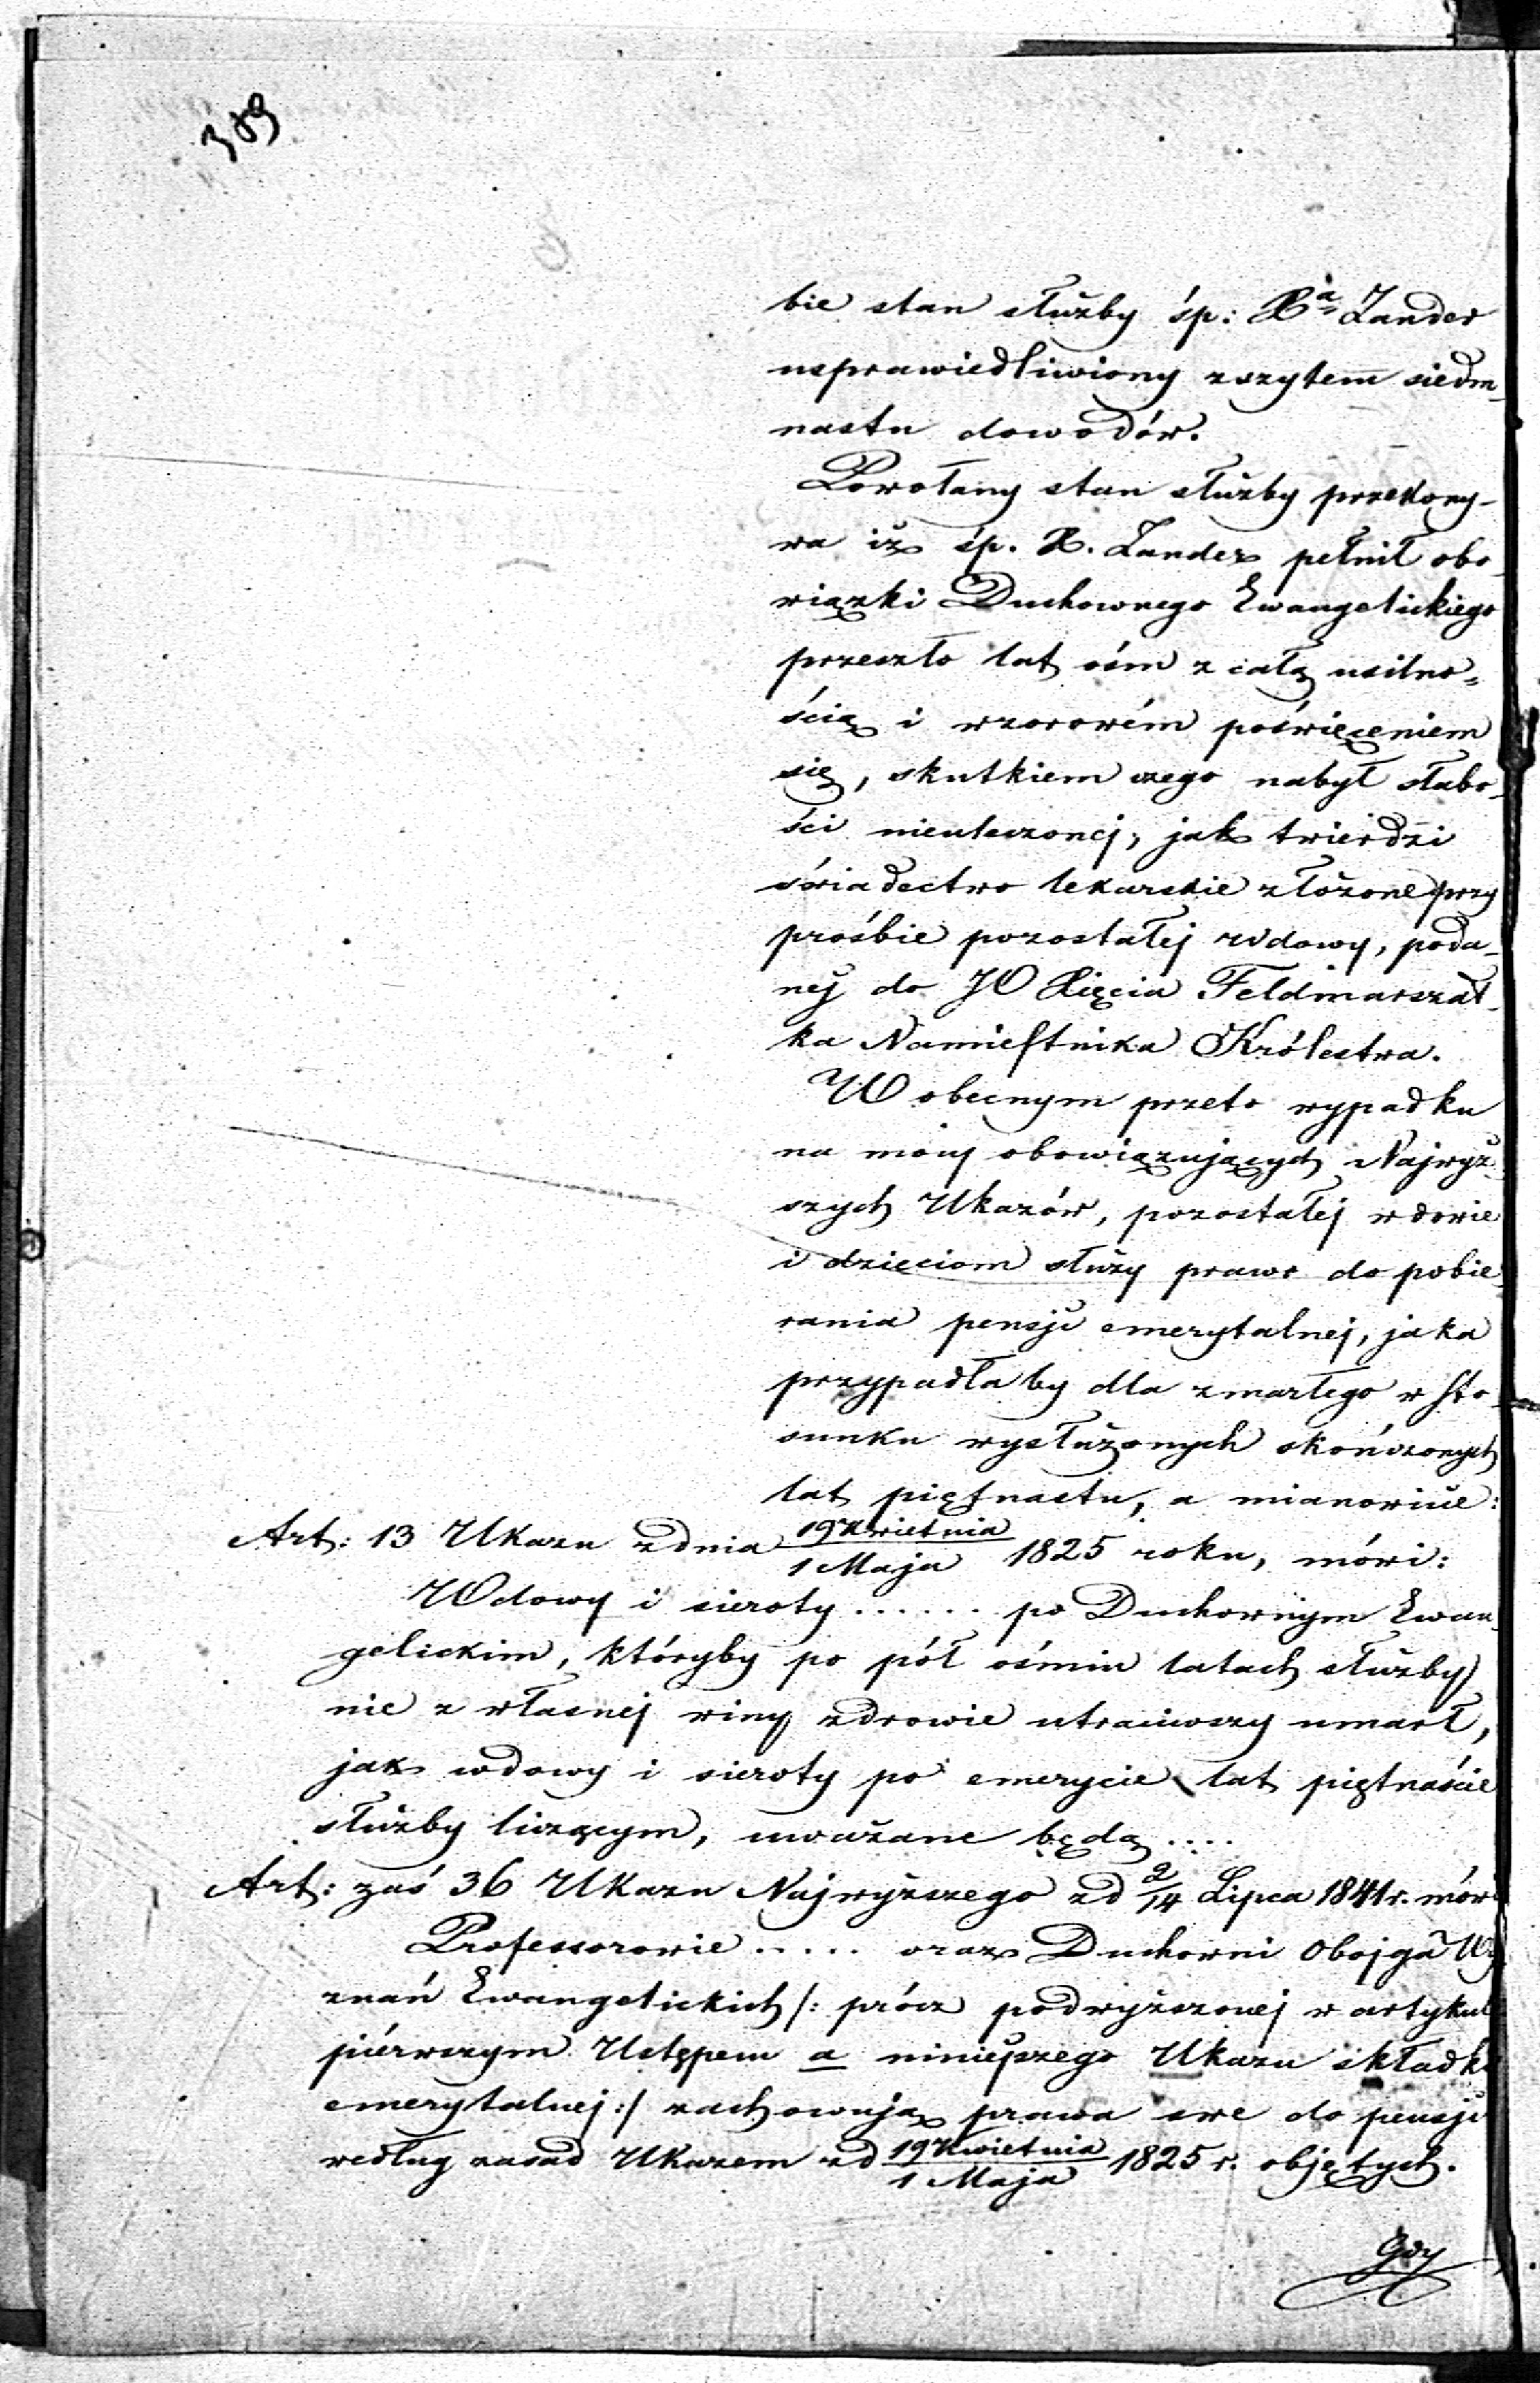 309
bie stan służby śp: Xa Zander
usprawiedliwiony zszytem siedm-
nastu dowodów.
Powołany stan służby przekony-
wa iż śp. X. Zander pełnił obo-
wiązki Duchownego Ewangelickiego
przeszło lat óśm z całą usilno-
ścią i wzorowém poświęceniem
się, skutkiem czego nabył słabo-
ści nieuleczonej, jak twierdzi
świadectwo lekarskie złożone przy
prośbie pozostałej wdowy, poda-
nej do JO Xięcia Feldmarszał-
ka Namiestnika Królestwa.
W obecnym przeto wypadku
na mocy obowiązujących Najwyż-
szych Ukazów, pozostałej wdowie
i dzieciom służy prawo do pobie-
rania pensji emerytalnej, jaka
przypadłaby dla zmarłego w sto-
sunku wysłużonych skończonych
lat piętnastu, a mianowicie:
Art: 13 Ukazu z dnia 19 Kwietnia / 1 Maja 1825 roku, mówi:
Wdowy i sieroty ...... po Duchownym Ewan-
gelickim, któryby po pół ośmiu latach służby
nie z własnej winy zdrowie utraciwszy umarł,
jak wdowy i sieroty po emerycie lat piętnaście
służby liczącym, uważane będą ....
Art: zaś 36 Ukazu Najwyższego z d 2/14 Lipca 1841 r. mówi
Professorowie ..... oraz Duchowni Obojga Wy
znań Ewangelickich /: prócz podwyższonej w artykule
piérwszym Ustępem a niniejszego Ukazu składki
emerytalnej :/ zachowują prawa swe do pensji
według zasad Ukazem z d 19 Kwietnia / 1 Maja 1825 r. objętych.
Gdy